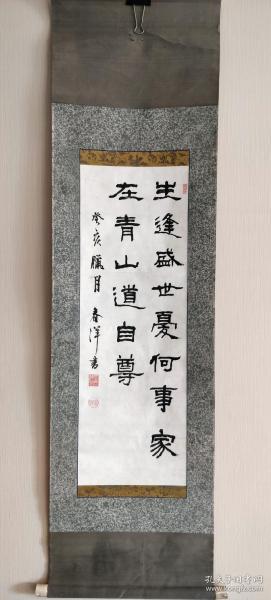 生逢盛世憂何事家
在青山道自尊
癸亥臘月 春洋書
孔夫子旧书网